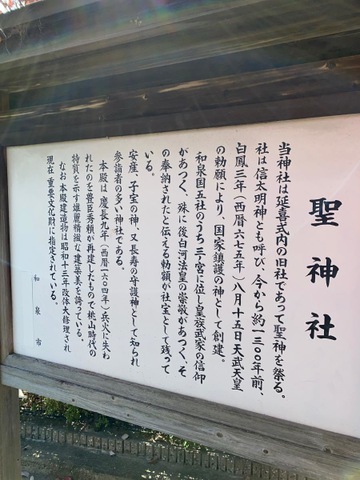 聖神社
当神社は延喜式内の旧社であって聖神を祭る。
社は信太明神とも呼び、今から約一三〇〇年前、
白鳳三年(西暦六七五年)八月十五日天武天皇
の勅願により、国家鎮護の神として創建。
和泉国五社のうち三宮に位し皇族武家の信仰
があつく、殊に後白河法皇の崇敬があつく、そ
の奉納されたと伝える勅額が社宝として残って
いる。
安産、子宝の神、又長寿の守護神として知られ
参詣者の多い神社である。
本殿は慶長九年(西暦一六〇四年)兵火に失わ
れたのを豊臣秀頼が再建したもので桃山時代の
特質を示す雄麗精緻な建築美を誇っている。
なお本殿建造物は昭和十三年改体大修理され
現在重要文化財に指定されている。
和泉市